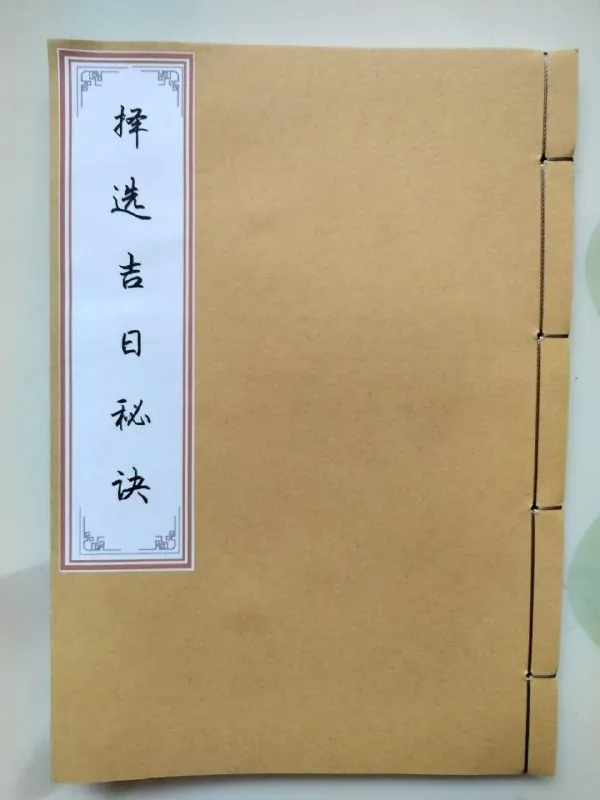 择选吉日秘诀